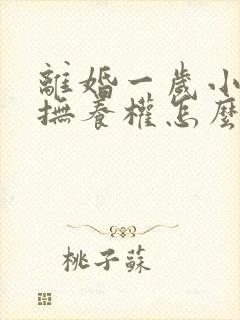 離婚一歲小
撫養權怎麼
桃子蘇